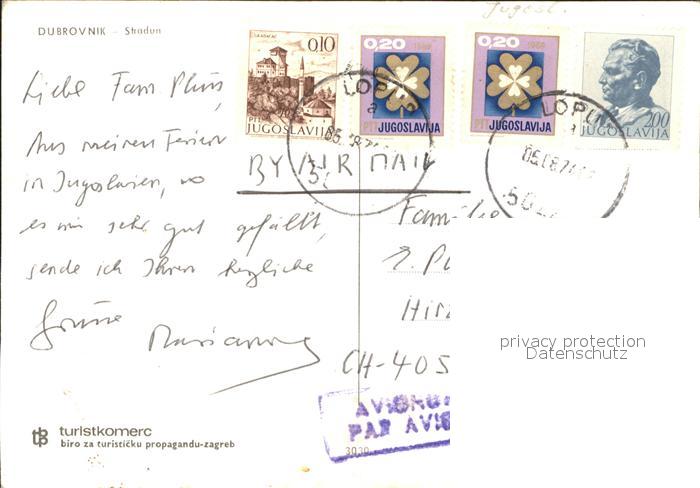 Jugosl.
DUBROVNIK – Stradun
GRADAČAC
0.10
PTT
JUGOSLAVIJA
0,20 1969
PTT JUGOSLAVIJA
0,20 1969
PTT JUGOSLAVIJA
2.00
JUGOSLAVIJA
LOPUD
a
05.08.74
LOPU
a
05.08.74
502
BY AIR MAIL
Liebe Fam
Aus meinen Ferien
in Jugoslavien, wo
es mir sehr gut gefällt,
sende ich Ihnen herzliche
Grüsse
Familie
CH-405
privacy protection
Datenschutz
AVION
PAR AVIO
3030
turistkomerc
biro za turističku propagandu-zagreb